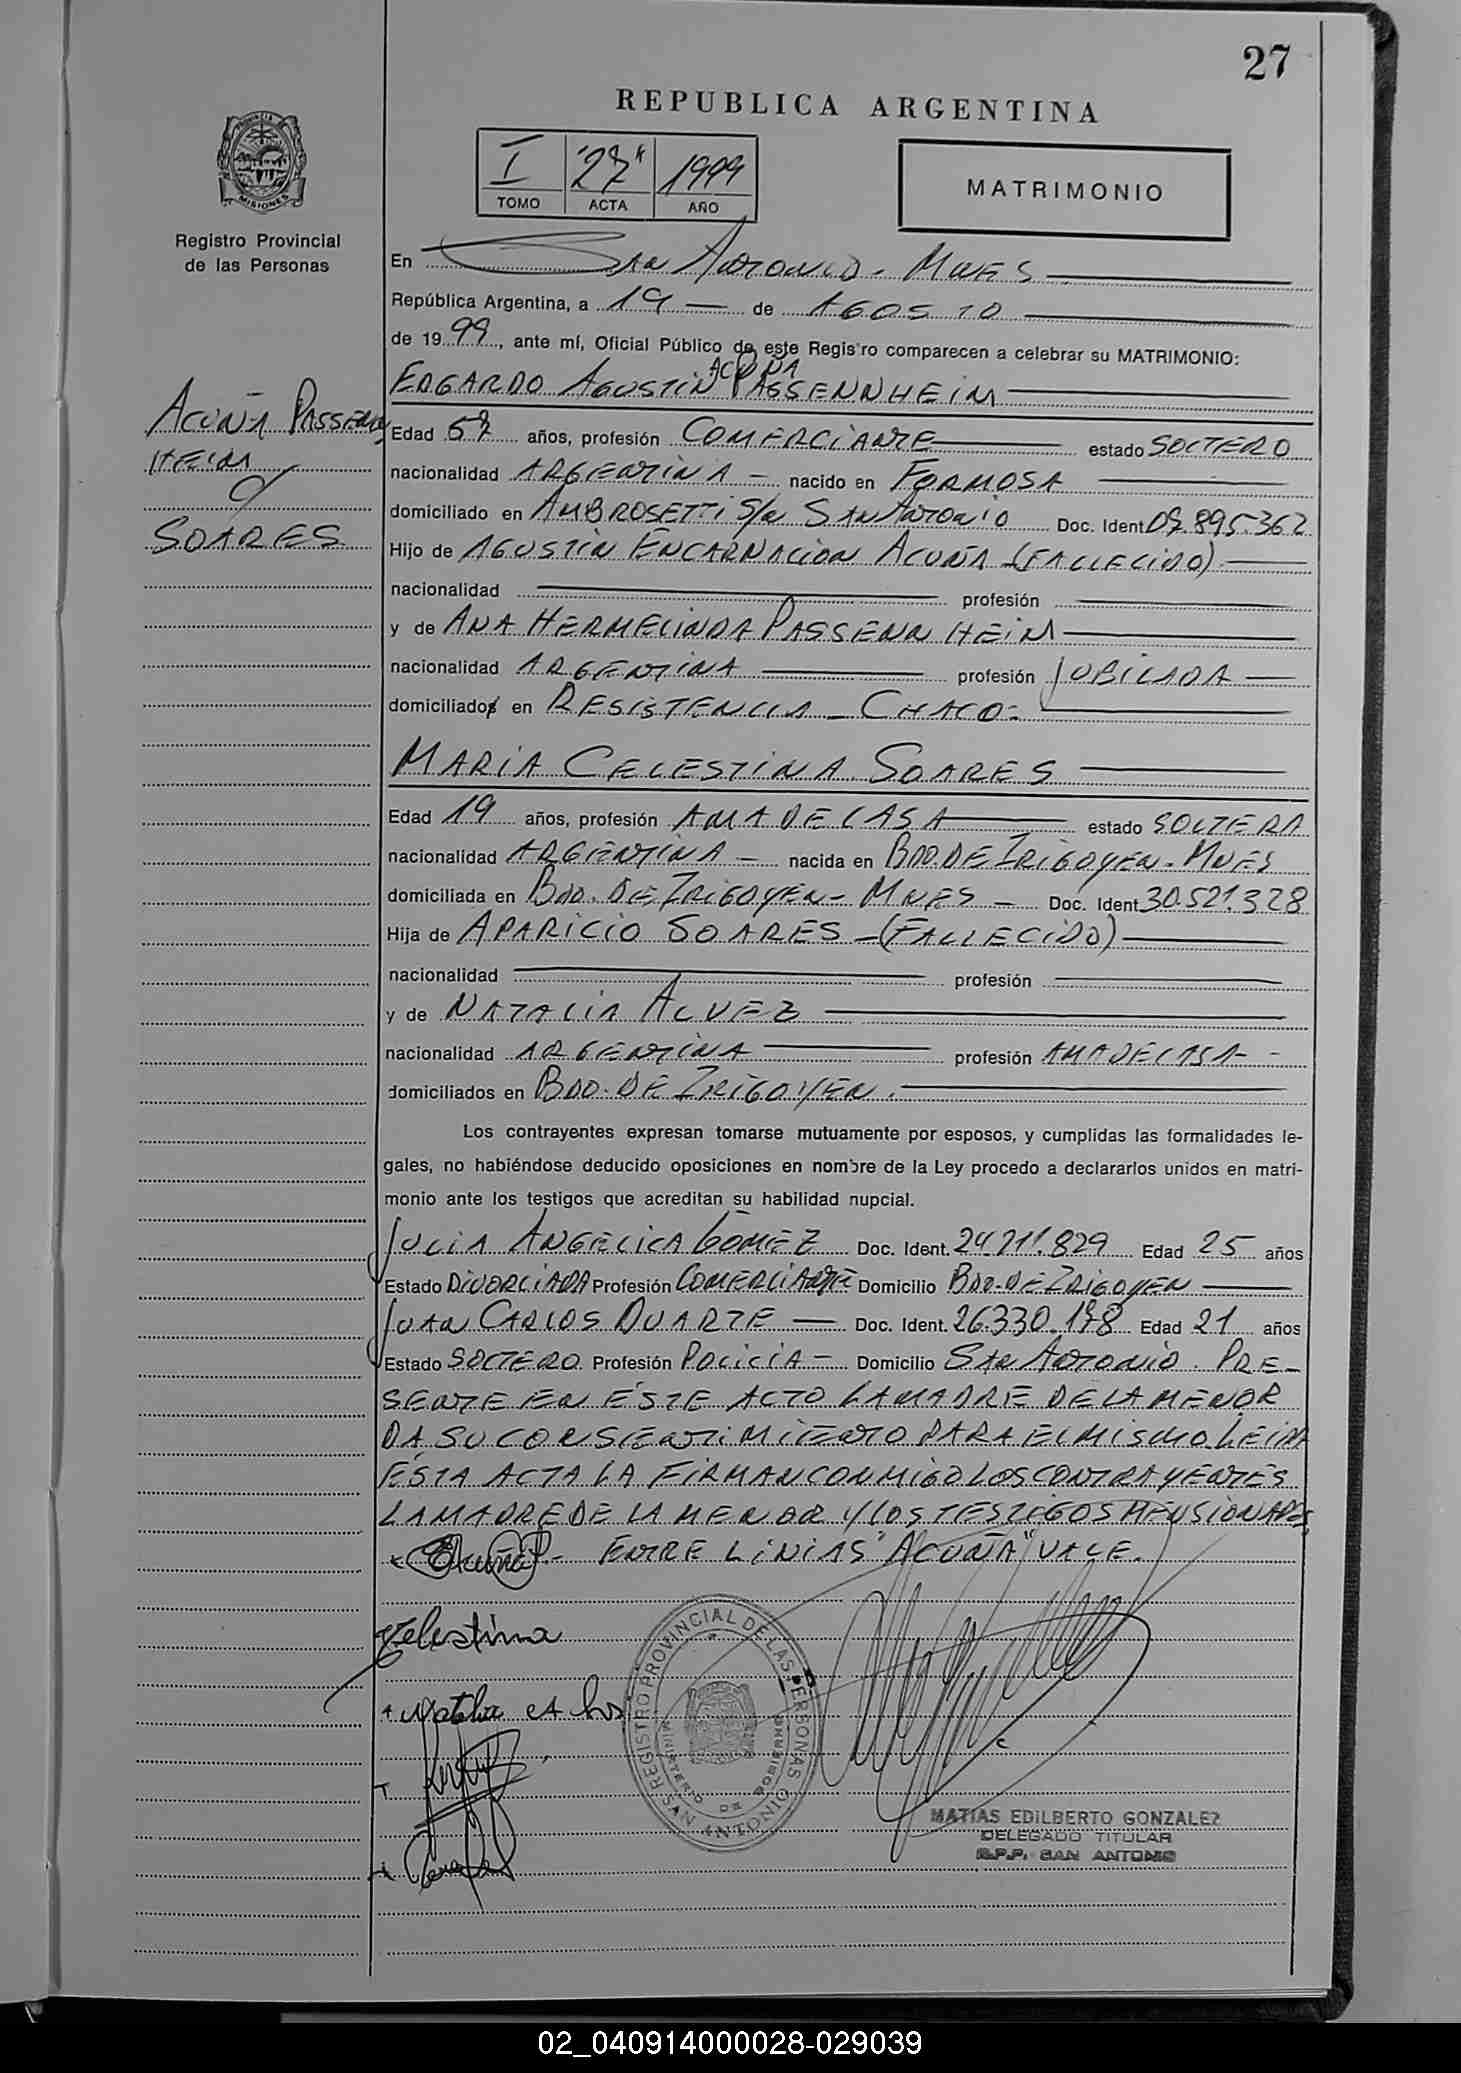 27
REPUBLICA ARGENTINA
I "27" 1999
TOMO ACTA AÑO
MATRIMONIO
PROVINCIA DE MISIONES
Registro Provincial
de las Personas
En SAN ANTONIO - MNES
República Argentina, a 19 de AGOSTO
de 1999, ante mí, Oficial Público de este Registro comparecen a celebrar su MATRIMONIO:
ACUÑA
EDGARDO AGUSTIN PASSENNHEIM
ACUÑA PASSENN
HEIM
y
SOARES
Edad 57 años, profesión COMERCIANTE estado SOLTERO
nacionalidad ARGENTINA - nacido en FORMOSA
domiciliado en AMBROSETTI S/n SAN ANTONIO Doc. Ident 07.895.362
Hijo de AGUSTIN ENCARNACION ACUÑA - (FALLECIDO)
nacionalidad profesión
y de ANA HERMELINDA PASSENNHEIM
nacionalidad ARGENTINA profesión JUBILADA
domiciliados en RESISTENCIA - CHACO -
MARIA CELESTINA SOARES
Edad 19 años, profesión AMA DE CASA estado SOLTERA
nacionalidad ARGENTINA - nacida en BDO. DE IRIGOYEN - MNES
domiciliada en BDO. DE IRIGOYEN - MNES - Doc. Ident 30.521.328
Hija de APARICIO SOARES - (FALLECIDO)
nacionalidad profesión
y de NATALIA ALVEZ
nacionalidad ARGENTINA profesión AMA DE CASA -
domiciliados en BDO. DE IRIGOYEN.
Los contrayentes expresan tomarse mutuamente por esposos, y cumplidas las formalidades le-
gales, no habiéndose deducido oposiciones en nombre de la Ley procedo a declararlos unidos en matri-
monio ante los testigos que acreditan su habilidad nupcial.
JULIA ANGELICA GOMEZ Doc. Ident. 24.211.829 Edad 25 años
Estado DIVORCIADA Profesión COMERCIANTE Domicilio BDO. DE IRIGOYEN
JUAN CARLOS DUARTE Doc. Ident. 26.330.178 Edad 21 años
Estado SOLTERO Profesión POLICIA - Domicilio SAN ANTONIO. PRE-
SENTE EN ESTE ACTO LA MADRE DE LA MENOR
DA SU CONSENTIMIENTO PARA EL MISMO LEIDA
ESTA ACTA LA FIRMAN CONMIGO LOS CONTRAYENTES
LA MADRE DE LA MENOR Y LOS TESTIGOS MENSIONADOS
ENTRE LINIAS "ACUÑA" VALE.
Celestina
REGISTRO PROVINCIAL DE LAS PERSONAS
MINISTERIO DE GOBIERNO
SAN ANTONIO
MATIAS EDILBERTO GONZALEZ
DELEGADO TITULAR
R.P.P. SAN ANTONIO
02_040914000028-029039